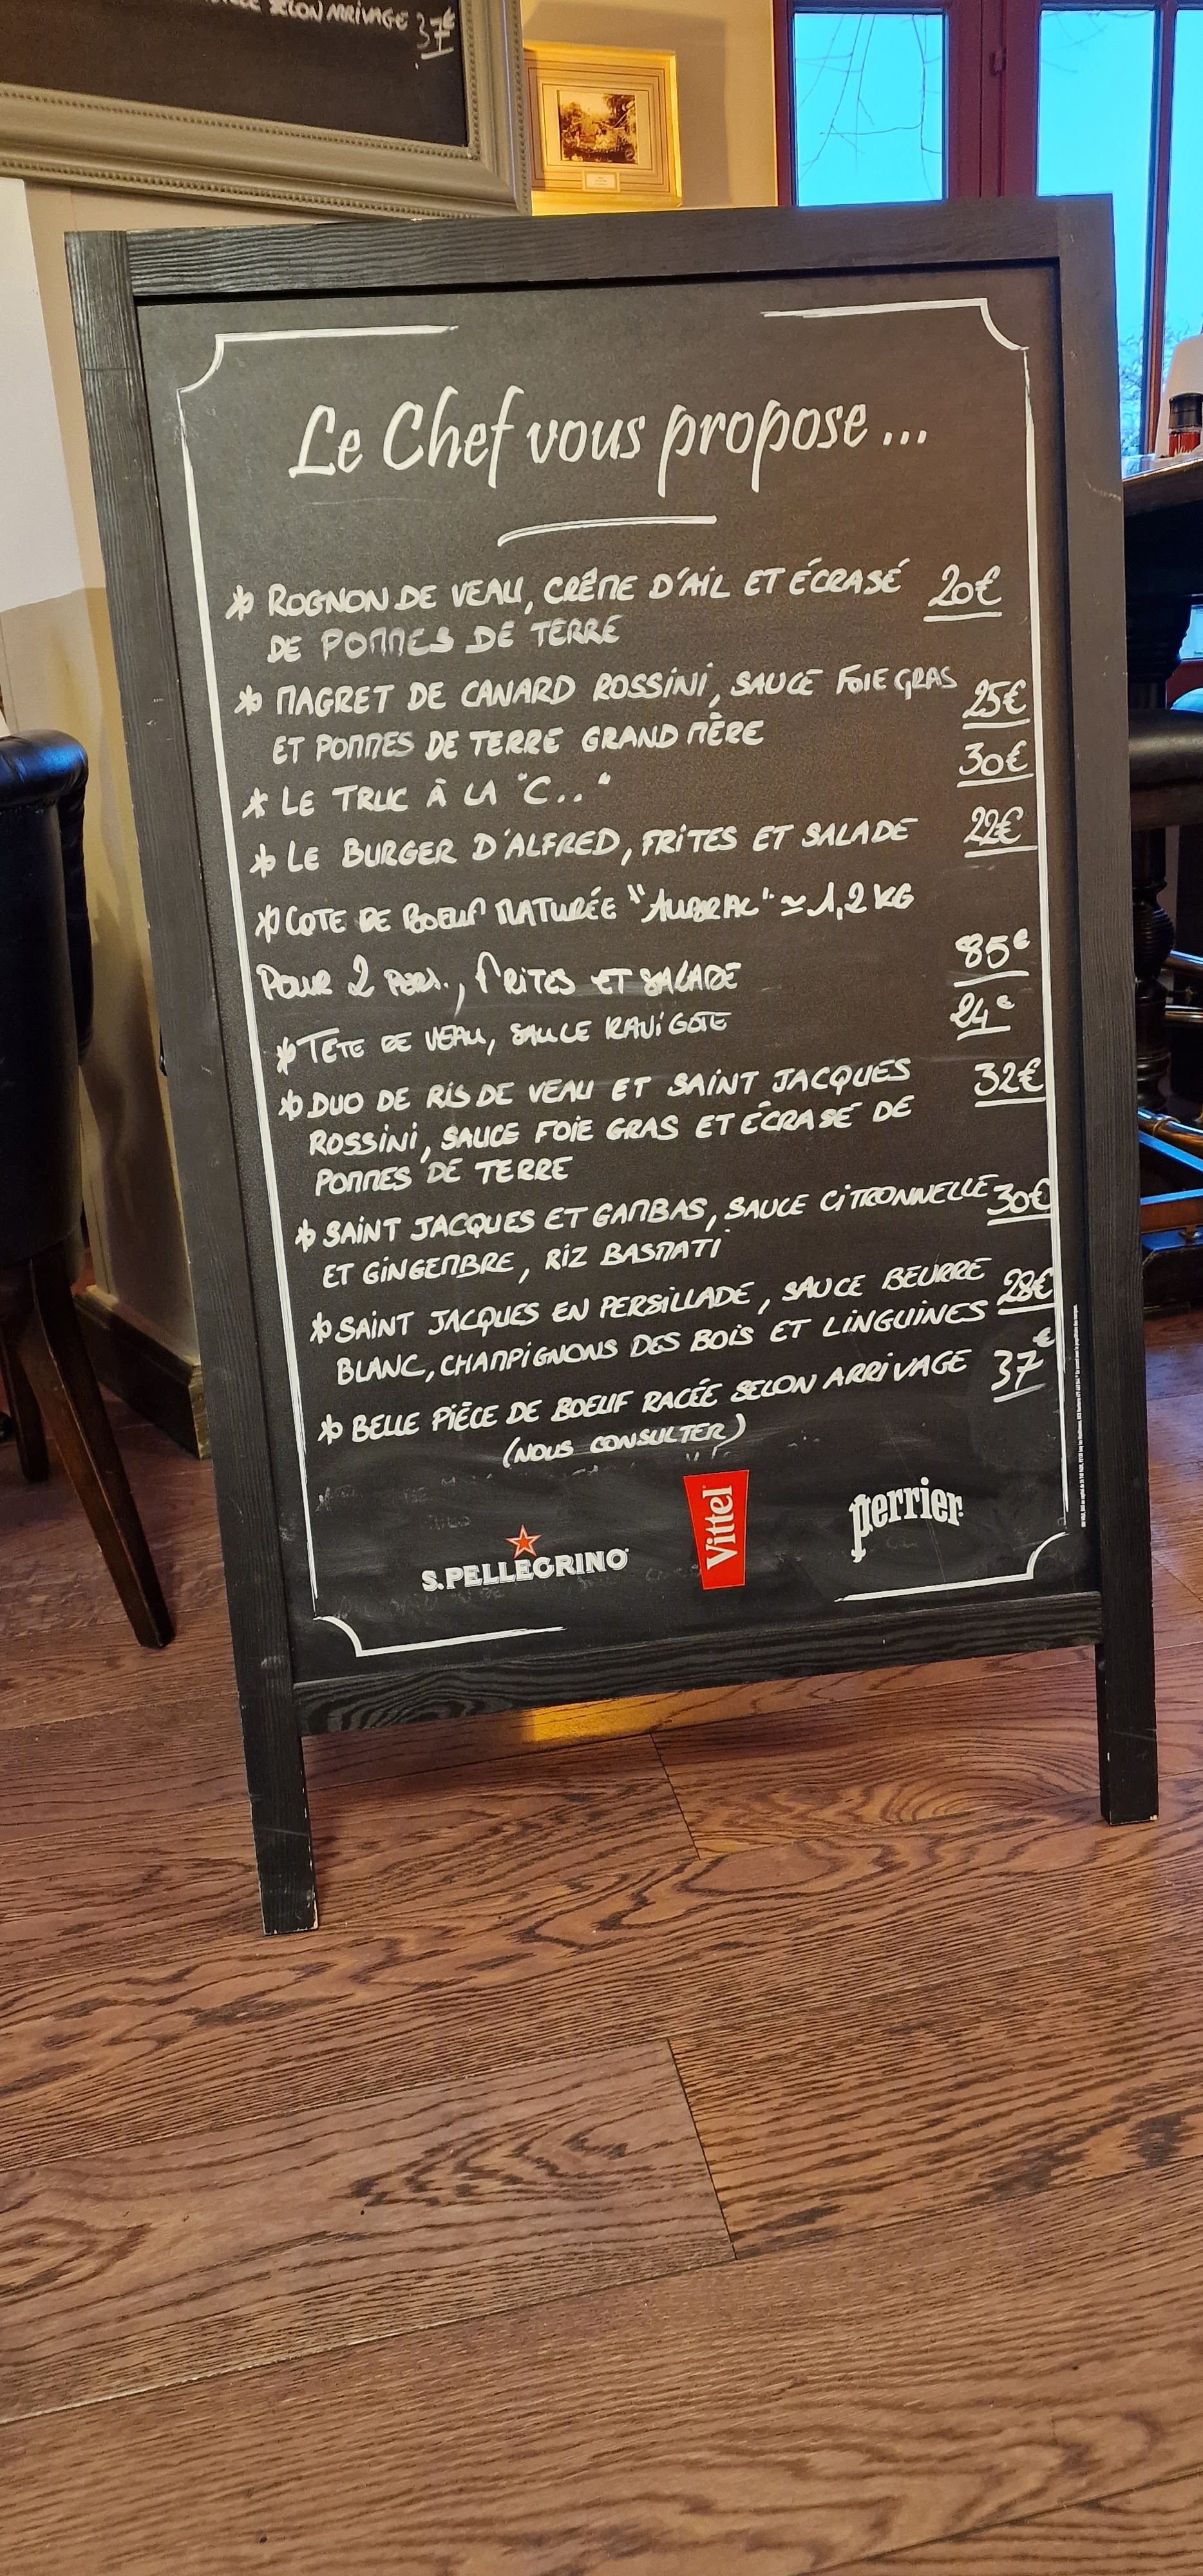 SELON ARRIVAGE 37€
Le Chef vous propose...
* ROGNON DE VEAU, CRÊME D'AIL ET ÉCRASÉ 20€
DE POMMES DE TERRE
* MAGRET DE CANARD ROSSINI, SAUCE FOIE GRAS
ET POMMES DE TERRE GRAND MÈRE 25€
* LE TRUC À LA "C.." 30€
* LE BURGER D'ALFRED, FRITES ET SALADE 22€
* COTE DE BOEUF MATURÉE "AUBRAC" ≃ 1,2 KG
POUR 2 PERS., FRITES ET SALADE 85€
* TETE DE VEAU, SAUCE RAVIGOTE 24€
* DUO DE RIS DE VEAU ET SAINT JACQUES 32€
ROSSINI, SAUCE FOIE GRAS ET ÉCRASÉ DE
POMMES DE TERRE
* SAINT JACQUES ET GAMBAS, SAUCE CITRONNELLE 30€
ET GINGEMBRE, RIZ BASMATI
* SAINT JACQUES EN PERSILLADE, SAUCE BEURRE 28€
BLANC, CHAMPIGNONS DES BOIS ET LINGUINES
* BELLE PIÈCE DE BOEUF RACÉE SELON ARRIVAGE 37€
(NOUS CONSULTER)
S.PELLEGRINO Vittel perrier